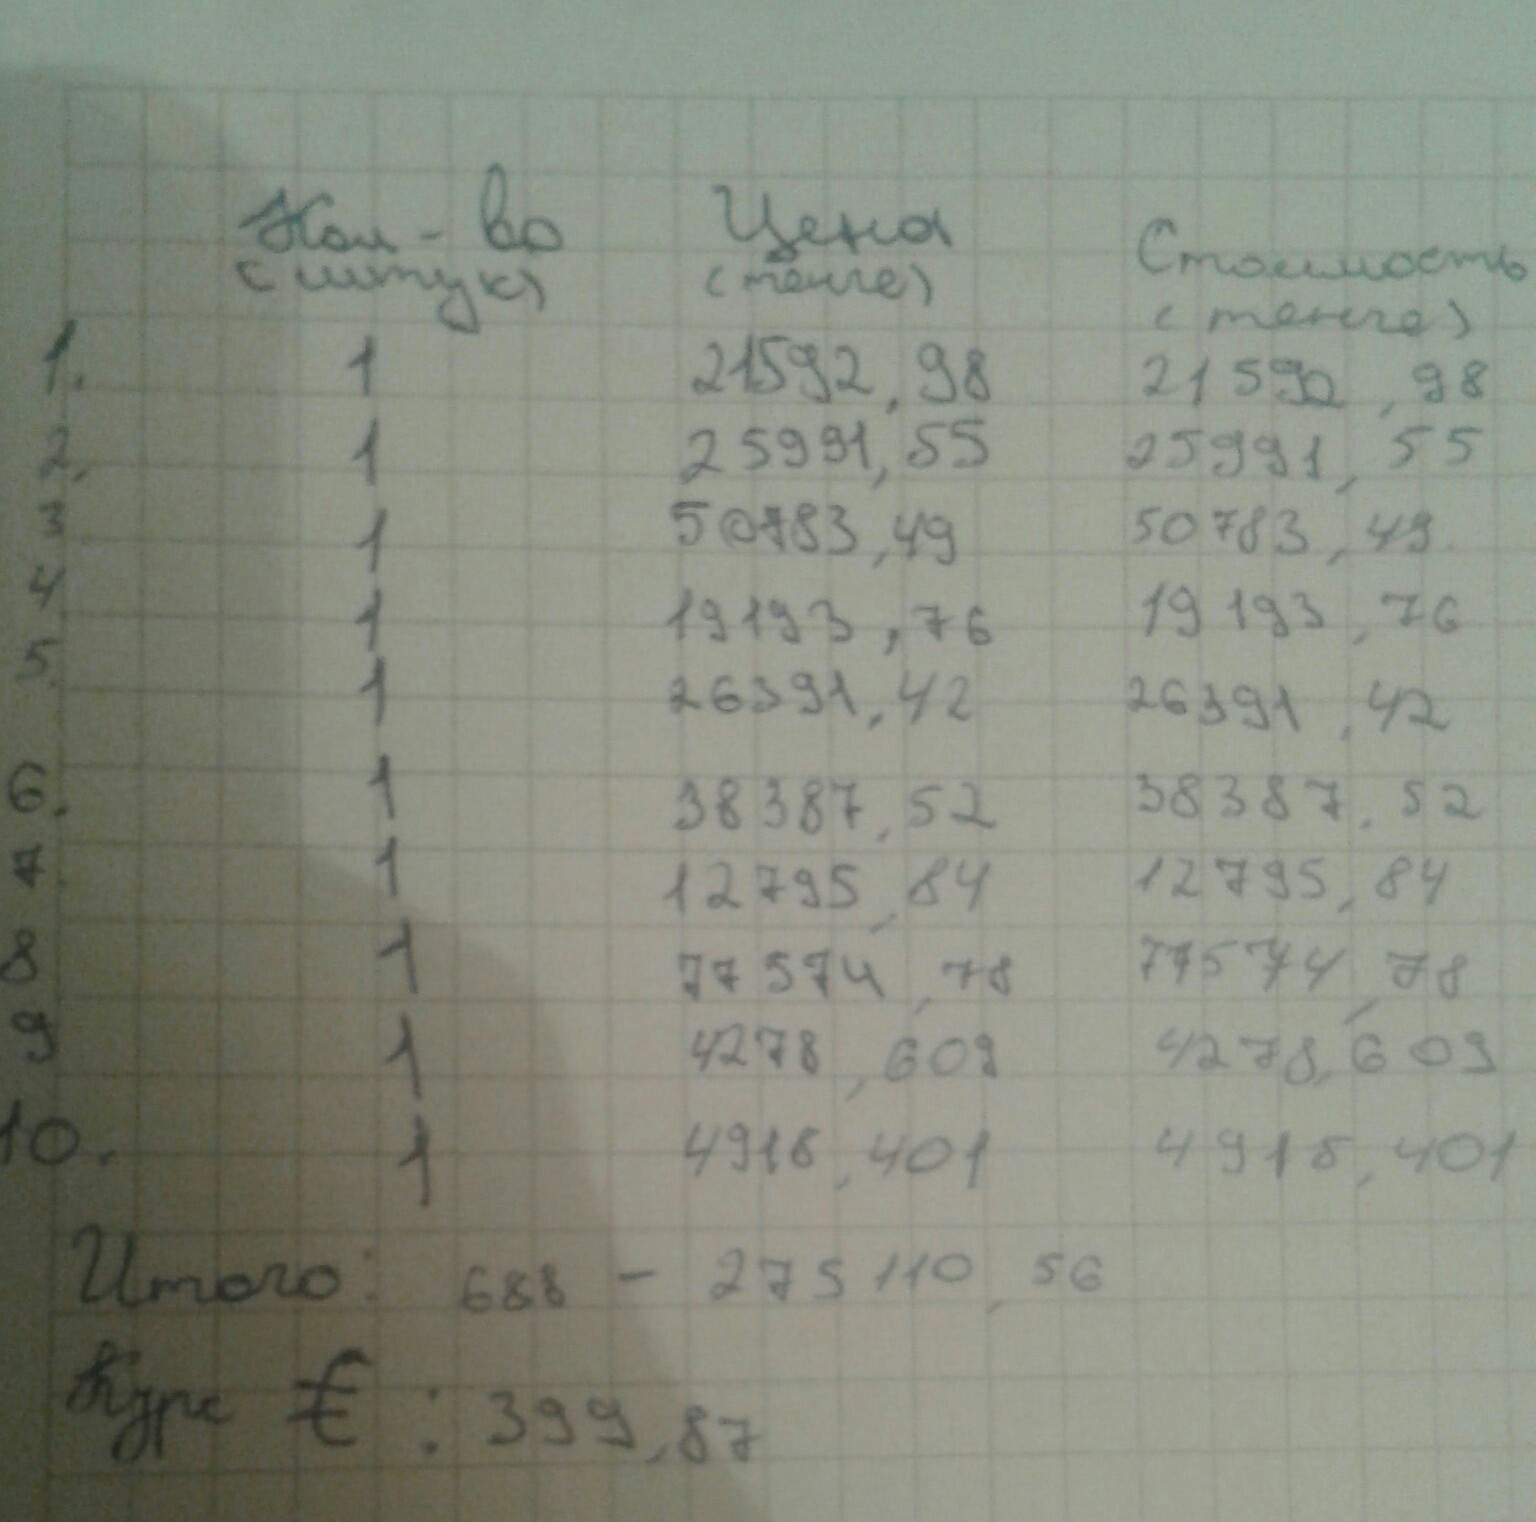 Кол-во Цена Стоимость
(штук) (тенге) (тенге)
1. 1 21592,98 21592,98
2. 1 25991,55 25991,55
3 1 50783,49 50783,49
4 1 19193,76 19193,76
5. 1 26391,42 26391,42
6. 1 38387,52 38387,52
7. 1 12795,84 12795,84
8 1 77574,78 77574,78
9 1 4278,609 4278,609
10. 1 4918,401 4918,401
Итого: 688 - 275110,56
Курс € : 399,87